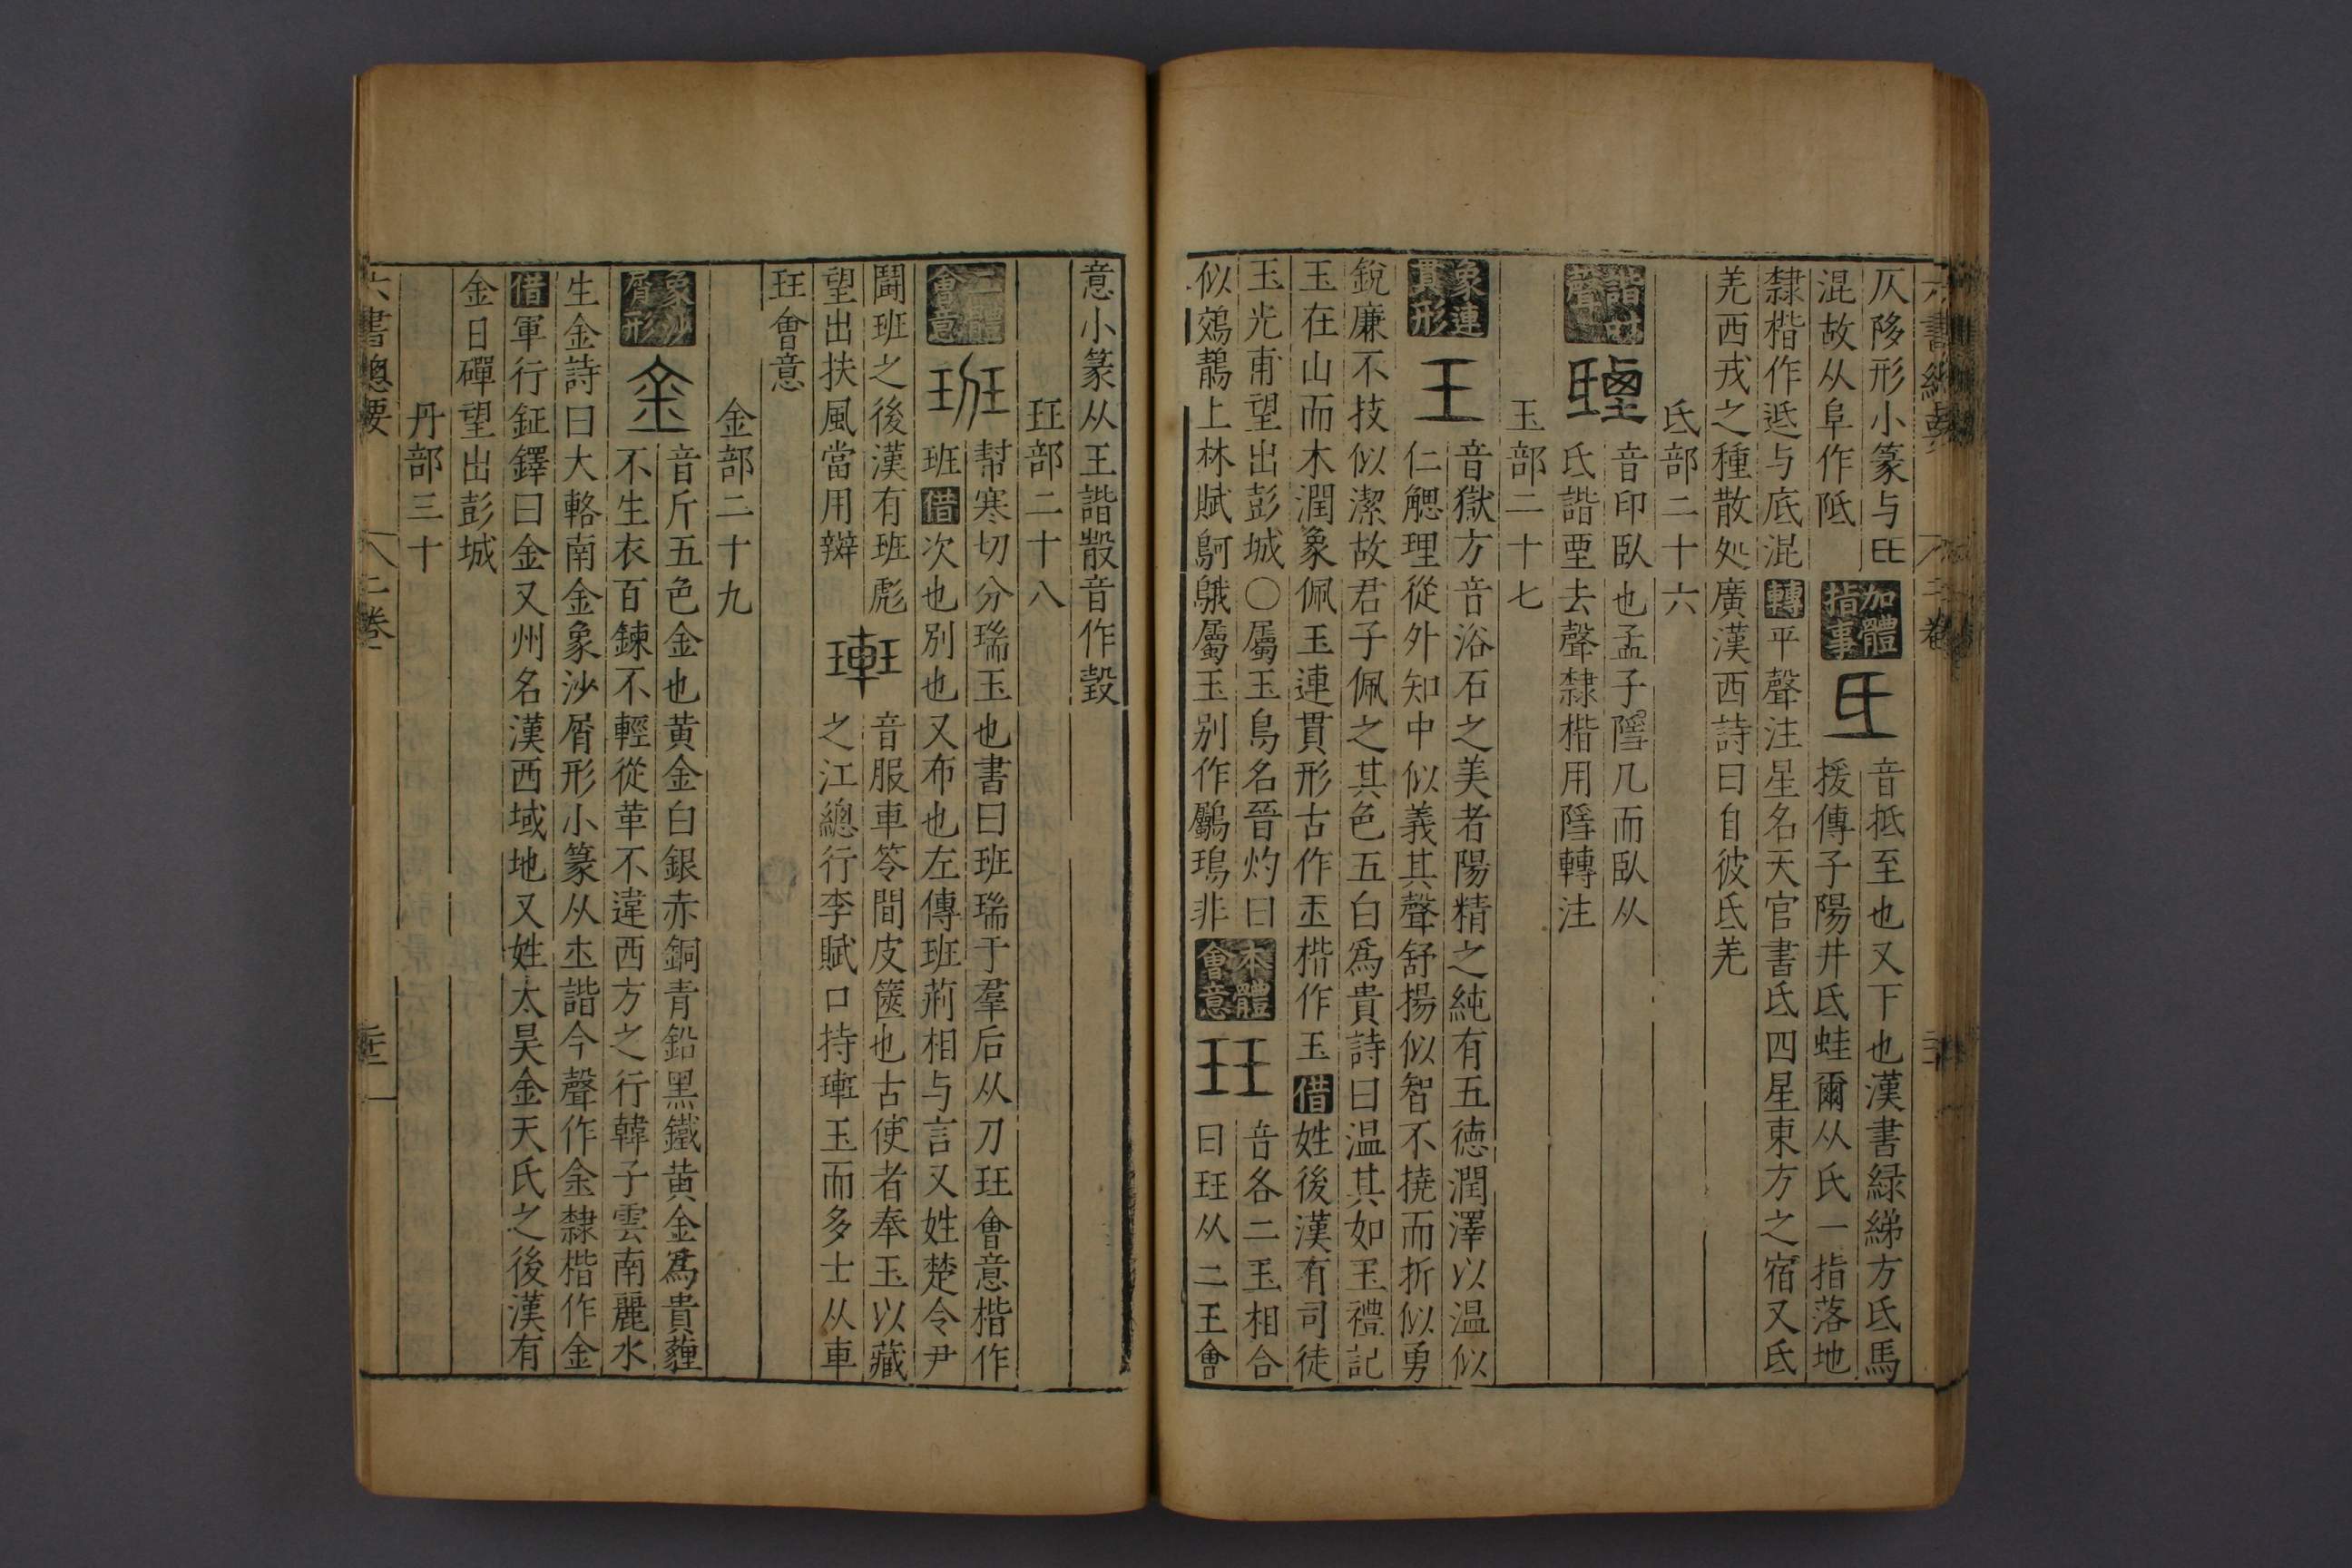 六書總要 二卷
仄陊形小篆与氐加體指事氐音抵至也又下也漢書綠綈方氐馬
混故从阜作阺援傳子陽井氐蛙爾从氏一指落地
隸楷作逓与底混轉平聲注星名天官書氐四星東方之宿又氐
羌西戎之種散処廣漢西詩曰自彼氐羌
氐部二十六
諧聲音印臥也孟子隱几而臥从
氐諧垔去聲隸楷用隱轉注
玉部二十七
象連貫形王音獄方音浴石之美者陽精之純有五德潤澤以温似
仁䚡理從外知中似義其聲舒揚似智不撓而折似勇
銳廉不技似潔故君子佩之其色五白爲貴詩曰温其如玉禮記
玉在山而木潤象佩玉連貫形古作玊楷作玉借姓後漢有司徒
玉光甫望出彭城〇屬玉鳥名晉灼曰本體會意玨音各二玉相合
似鵁鶄上林賦鴚䳘屬玉别作鸀鳿非曰玨从二王會
意小篆从王諧㱿音作瑴
玨部二十八
會意班幇寒切分瑞玉也書曰班瑞于羣后从刀玨會意楷作
班借次也別也又布也左傳班荊相与言又姓楚令尹
鬪班之後漢有班彪䡩音服車笭間皮篋也古使者奉玉以藏
望出扶風當用辬之江總行李賦口持䡩玉而多士从車
玨會意
金部二十九
象沙屑形金音斤五色金也黄金白銀赤銅青鉛黑鐵黄金爲貴薶
不生衣百鍊不輕從革不違西方之行韓子雲南麗水
生金詩曰大輅南金象沙屑形小篆从土諧今聲作金隸楷作金
借軍行鉦鐸曰金又州名漢西域地又姓太昊金天氏之後漢有
金日磾望出彭城
丹部三十
六書總要 二卷